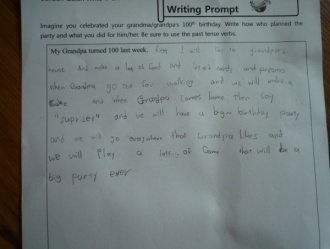 Writing Prompt
Imagine you celebrated your grandma/grandpa's 100th birthday. Write how who planned the
party and what you did for him/her. Be sure to use the past tense verbs.
My Grandpa turned 100 last week. first I will Go to grandpa's
house And make a log of food and
when Grandpa go out for walking and we will make a
Cake and when Grandpa comes home Then say
"suprise!" and we will have a big birthday party
and we will go everywhere that Grandpa likes and
we will Play a lots of Game that will be a
big party ever